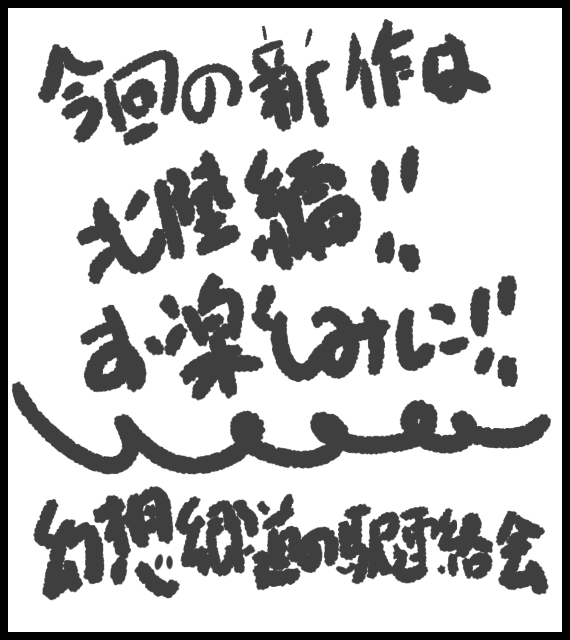 今回の新作は
北陸編!!
お楽しみに!!
幻想郷道の駅連絡会